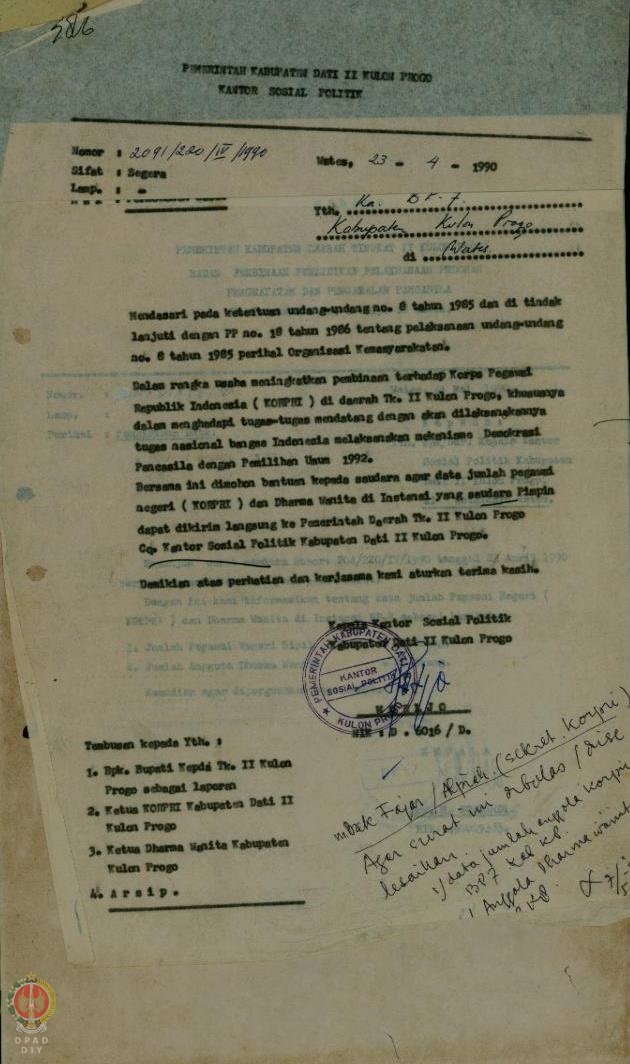 586
PEMERINTAH KABUPATEN DATI II KULON PROGO
KANTOR SOSIAL POLITIK
Nomor : 2091/220/IV/1990
Wates, 23 - 4 - 1990
Sifat : Segera
Lamp. : -
Yth. Ka. BP-7
Kabupaten Kulon Progo
di Wates
PEMERINTAH KABUPATEN DAERAH TINGKAT II KULON
BADAN PEMBINAAN PENDIDIKAN PELAKSANAAN PEDOMAN
PENGHAYATAN DAN PENGAMALAN PANCASILA
Mendasari pada ketentuan undang-undang no. 8 tahun 1985 dan di tindak
lanjuti dengan PP no. 18 tahun 1986 tentang pelaksanaan undang-undang
no. 8 tahun 1985 perihal Organisasi Kemasyarakatan.
Dalam rangka usaha meningkatkan pembinaan terhadap Korps Pegawai
Republik Indonesia ( KORPRI ) di daerah Tk. II Kulon Progo, khususnya
dalam menghadapi tugas-tugas mendatang dengan akan dilaksanakannya
tugas nasional bangsa Indonesia melaksanakan mekanisme Demokrasi
Pancasila dengan Pemilihan Umum 1992.
Bersama ini dimohon bantuan kepada saudara agar data jumlah pegawai
negeri ( KORPRI ) dan Dharma Wanita di Instansi yang saudara Pimpin
dapat dikirim langsung ke Pemerintah Daerah Tk. II Kulon Progo
Cq. Kantor Sosial Politik Kabupaten Dati II Kulon Progo.
Demikian atas perhatian dan kerjasama kami aturkan terima kasih.
Kepala Kantor Sosial Politik
Kabupaten Dati II Kulon Progo
PEMERINTAH KABUPATEN DATI II
KANTOR
SOSIAL POLITIK
KULON PROGO
NIK : D. 6016 / D.
Tembusan kepada Yth. :
1. Bpk. Bupati Kepda Tk. II Kulon
Progo sebagai laporan
2. Ketua KORPRI Kabupaten Dati II
Kulon Progo
3. Ketua Dharma Wanita Kabupaten
Kulon Progo
4. A r s i p .
Fajar / (sekret. Korpri)
Agar surat ini dibalas / dise
lesaikan.
1/ data jumlah anggota Korpri
BP7 Kab KP.
Anggota Dharma wanit
KP.
7/5
DPAD
DIY